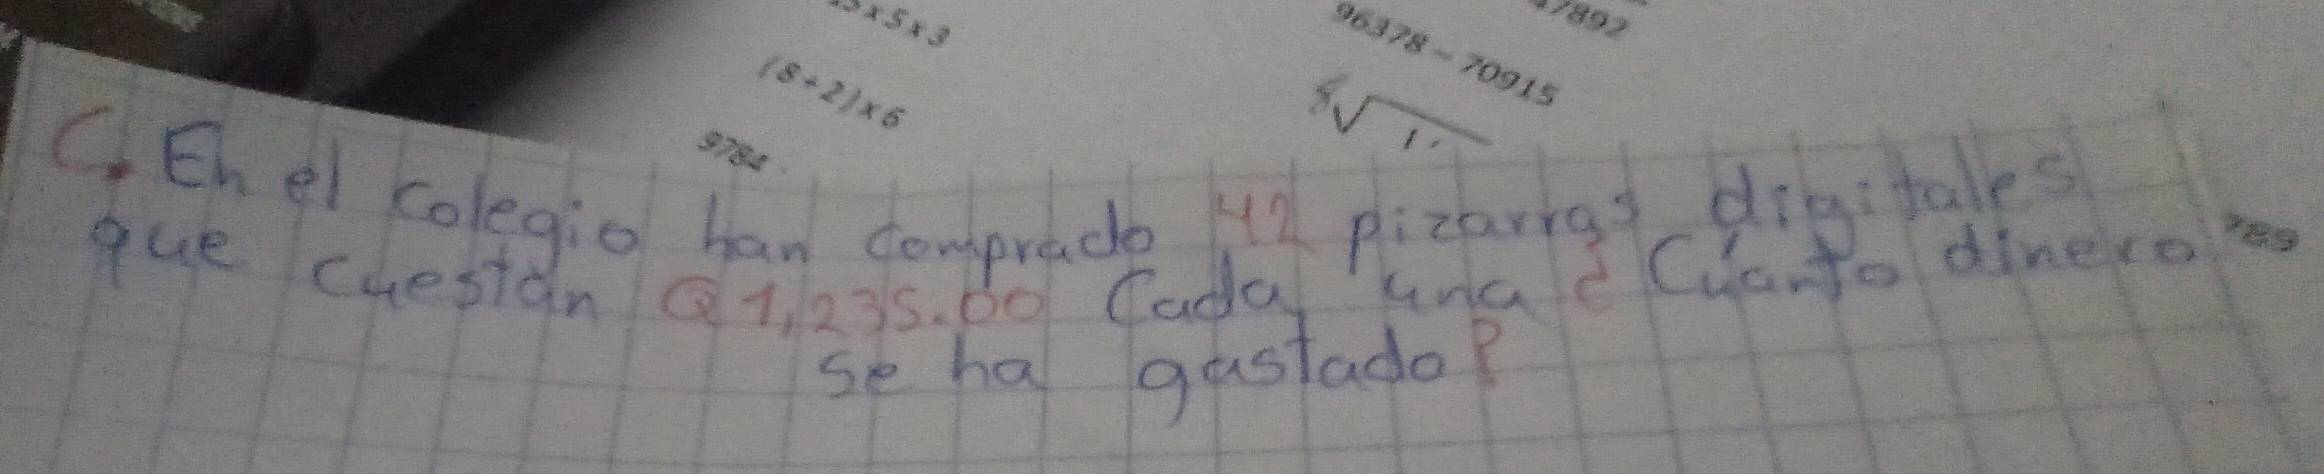 x5x3
(8+2)x6
9784
96378-70915
7892
C. En el colegio han comprado 42 pizarras digitales
que cuestan Q1,235.00 Cada una ¿Cuánto dinero
se ha gastado?
789